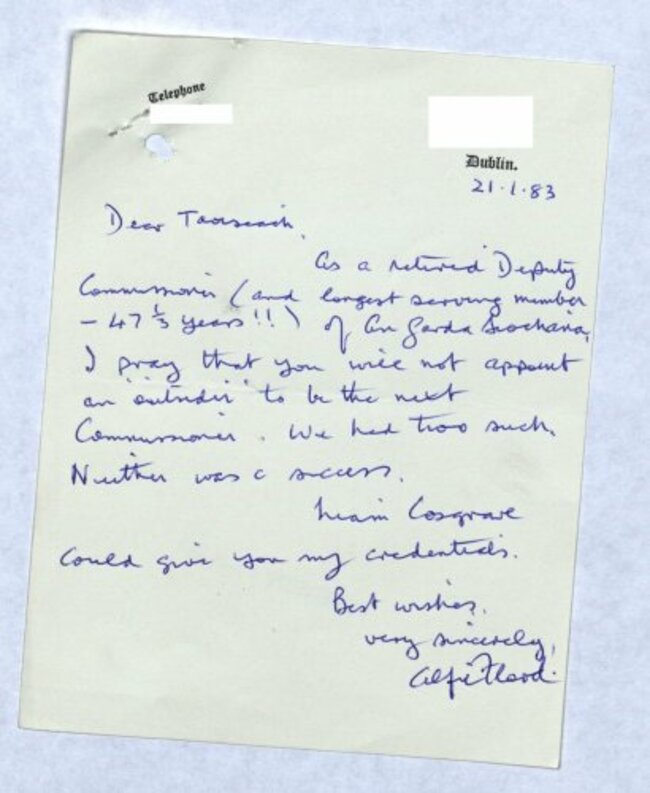 Telephone
Dublin.
21.1.83
Dear Taoiseach,
As a retired Deputy
Commissioner (and longest serving member
- 47 1/3 years!!) of An Garda Siochana,
I pray that you will not appoint
an "outsider" to be the next
Commissioner. We had two such.
Neither was a success.
Liam Cosgrave
could give you my credentials.
Best wishes,
very sincerely,
Alfie Flood.